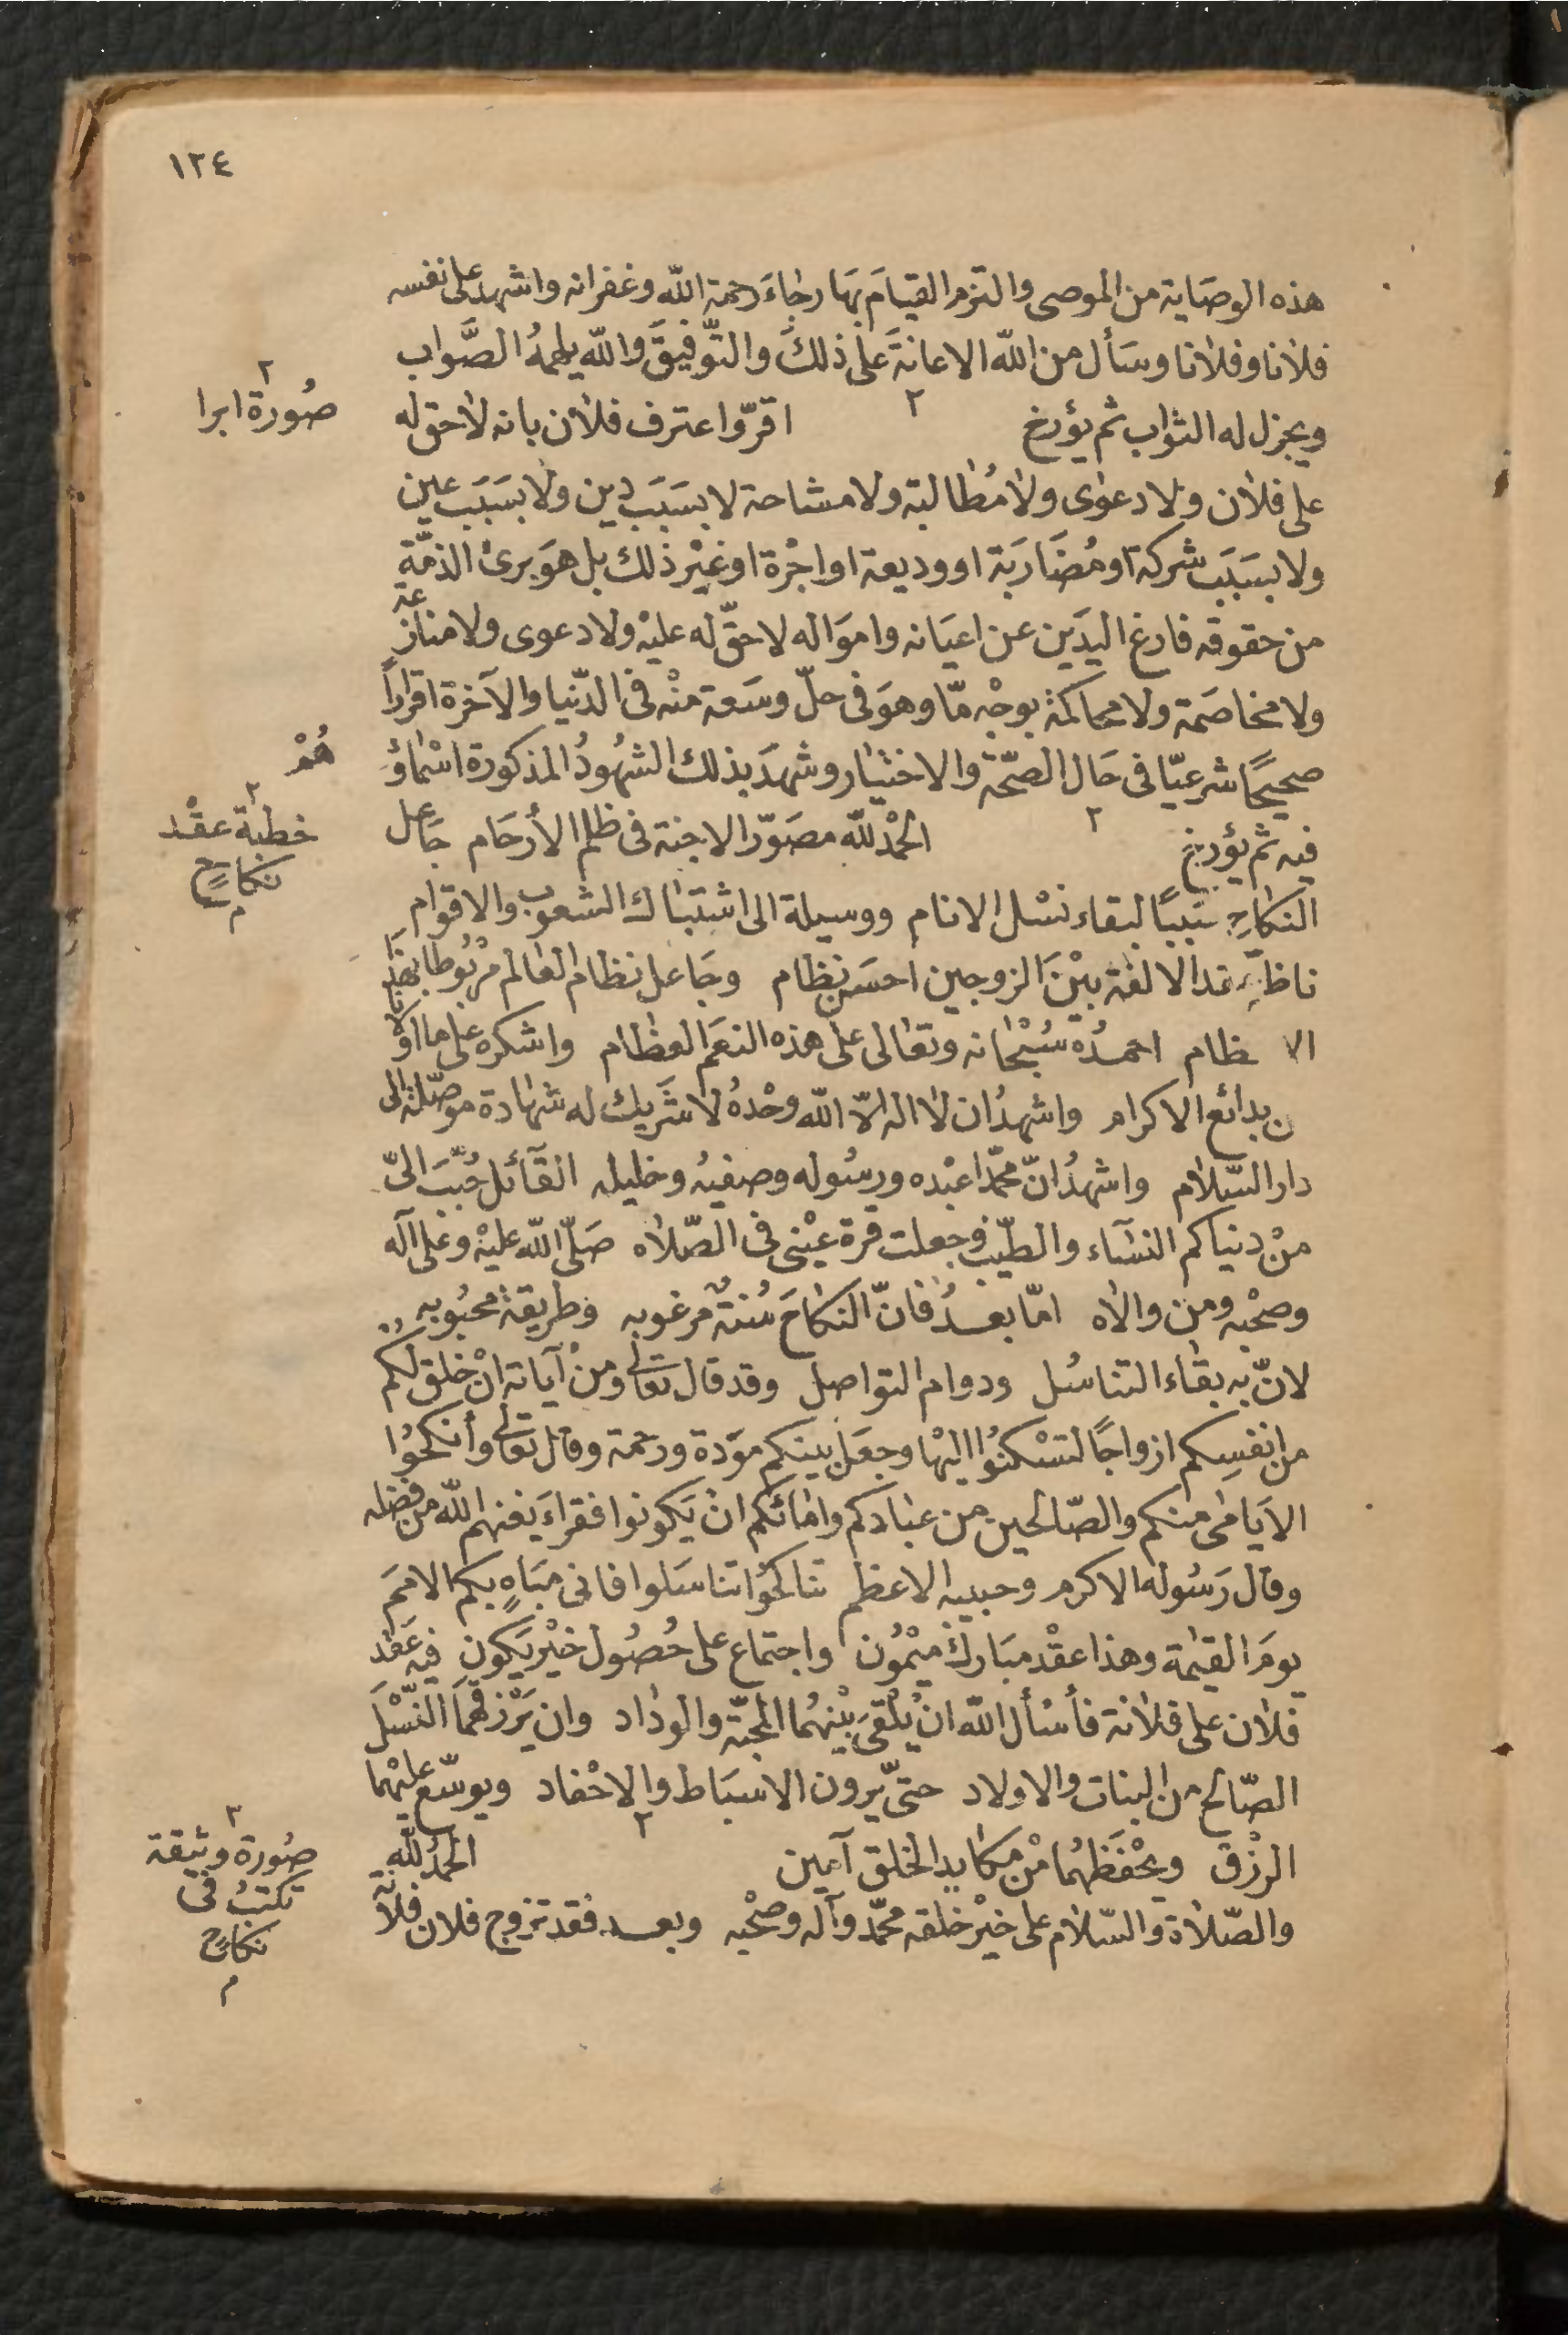 ١٢٤
هذه الوصَاية من الموصى والتزم القيامَ بهَا رجاءَ رحمة اللّه وغفرانه واشهد على نفسه
فلانا وفلانا وسَأل من اللّه الاعانةَ على ذلكَ والتّوفيقَ واللّه يلهمهُ الصَّواب
ويجزل له الثواب ثم يؤرخ ٢ اقرّ واعترف فلان بانه لاحق له
٢
صُورة ابرا
على فلان ولا دعوى ولا مُطالبة ولا مشاحة لا بسَبَب دين ولا بسَبَب عين
ولا بسَبَب شركة او مُضَارَبَة او وديعة او اجْرة او غيْر ذلك بل هوَ برئ الذمّة
من حقوقه فارغ اليدَين عن اعيَانه وامَواله لا حقّ له عليْه ولا دعوى ولا منازعة
ولا مخاصَمة ولا محاكمة بوجْه مّا وهوَ فى حلّ وسَعة منْه فى الدّنيا والآخرة اقراراً
صحيحًا شرعيّا فى حَال الصّحّة والاختيار وشهدَ بذلك الشهُودُ المذكورة اسْماؤ
هُمْ
فيه ثم يؤرخ ٢ الحمْد للّه مصَوّر الاجنة فى ظلم الأرحَام جَاعل
٢
خطبة عقْد
نكاحٍ
م
النكاحِ سَببًا لبقاء نسْل الانام ووسيلة الى اشتباك الشعوب والاقوام
عقد الالفة بيْنَ الزوجين احسَن نظام وجَاعل نظام العالم مرْبُوطا بهَذَا
احمدُه سُبْحانه وتعالى على هذه النعَم العظام واشكره على ما
بدائع الاكرام واشهدُ ان لا اله الاّ اللّه وحْدهُ لا شَريك له شهادة موصّلة الى
دار السّلام واشهدُ انّ محمّدا عبْده ورسُوله وصفيهُ وخليله القآئل حُبّبَ الىّ
منْ دنياكم النسَآء والطّيب وجعلت قرة عيْنى فى الصّلاه صَلّى اللّه عليْه وعلى آله
وصحْبه ومن والاه امّا بعدُ فانّ النكاحَ سُنةٌ مرغوبه وطريقة محبُوبه
لانّ به بقاء التناسُل ودوام التواصل وقد قال تعالى ومنْ آياته انْ خلق لكم
من انفسِكم ازواجًا لتسْكنُوا اليْها وجعَل بينكم موَدة ورحمة وقال تعالى وأنكحُوا
الايَامى منكم والصّالحين من عبادكم وامائكم انْ يَكونوا فقراءَ يغنهم اللّه من فضله
وقال رَسُوله الاكرم وحبيبه الاعظم تناكحُوا تناسَلوا فانى مبَاهٍ بكم الامَمَ
يومَ القيمة وهذا عقْد مبَارك ميْمُون واجتماع على حُصُول خيْر يَكون فيه عَقد
فلان على فلانة فأسْأل اللّه انْ يُلقىَ بيْنهُما المحبّة والوداد وان يَرْزقهمَا النّسْلَ
الصّالح من البنات والاولاد حتىّ يرون الاسبَاط والاحْفاد ويوسّع عليْهما
الرزْق ويحْفَظهُما منْ مكايد الخلق آمين ٢ الحمدُ للّه
٣
صُورة وثيقة
تكتبُ فى
نكاحٍ
م
والصّلاة والسّلام على خيْر خلقه محمّد وآله وصحْبه وبعد فقد تزوج فلان فلانة